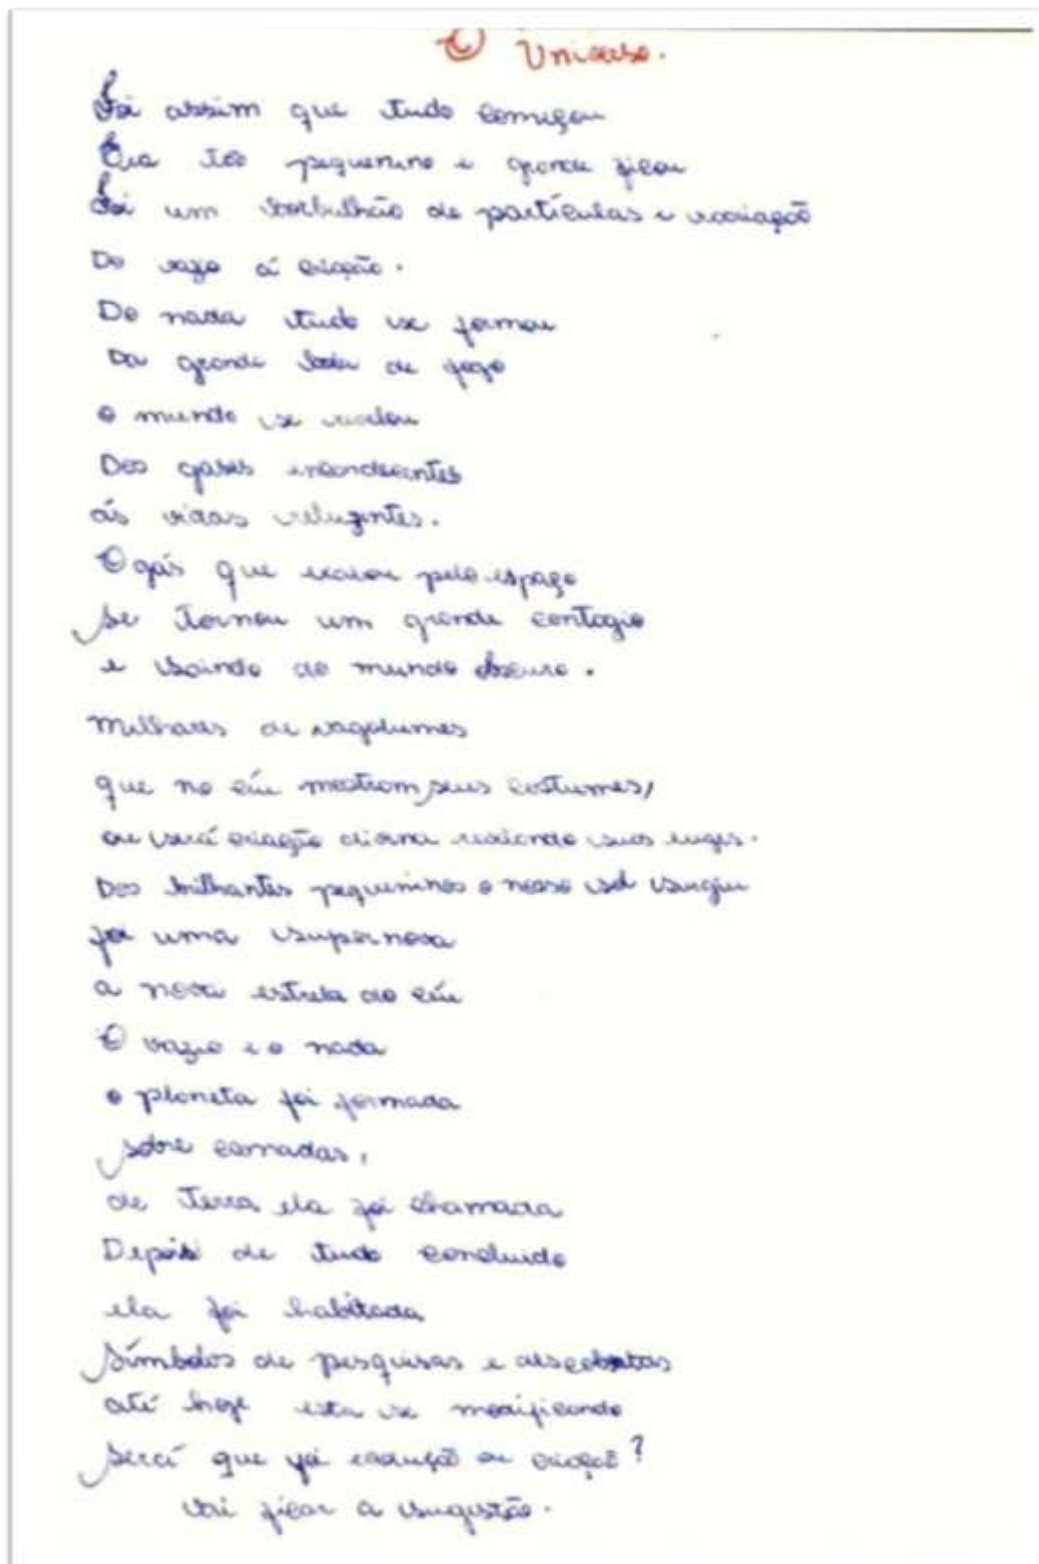 O Universo.
Foi assim que tudo começou
Era tão pequenino e grande ficou
Foi um borbulhão de partículas e variação
Do vazo á criação.
Do nada tudo se formou
Da grande bola de fogo
o mundo se
Dos gases incandecentes
ás vidas relugentes.
O gás que vazou pelo espaço
Se tornou um grande contagio
e saindo do mundo obscuro.
Milhares de vagalumes
que no céu mostram seus costumes,
ou será criação divina suas luzes.
Dos brilhantes pequeninos o nosso sol surgiu
foi uma supernova
a nova estrela do céu
O vazio e o nada
o planeta foi formada
sobre camadas,
de Terra ela foi chamada
Depois de tudo concluido
ela foi habitada
Símbolos de pesquisas e descobertas
até hoje esta se modificando
Será que foi evolução ou criação?
Vai ficar a sugestão.